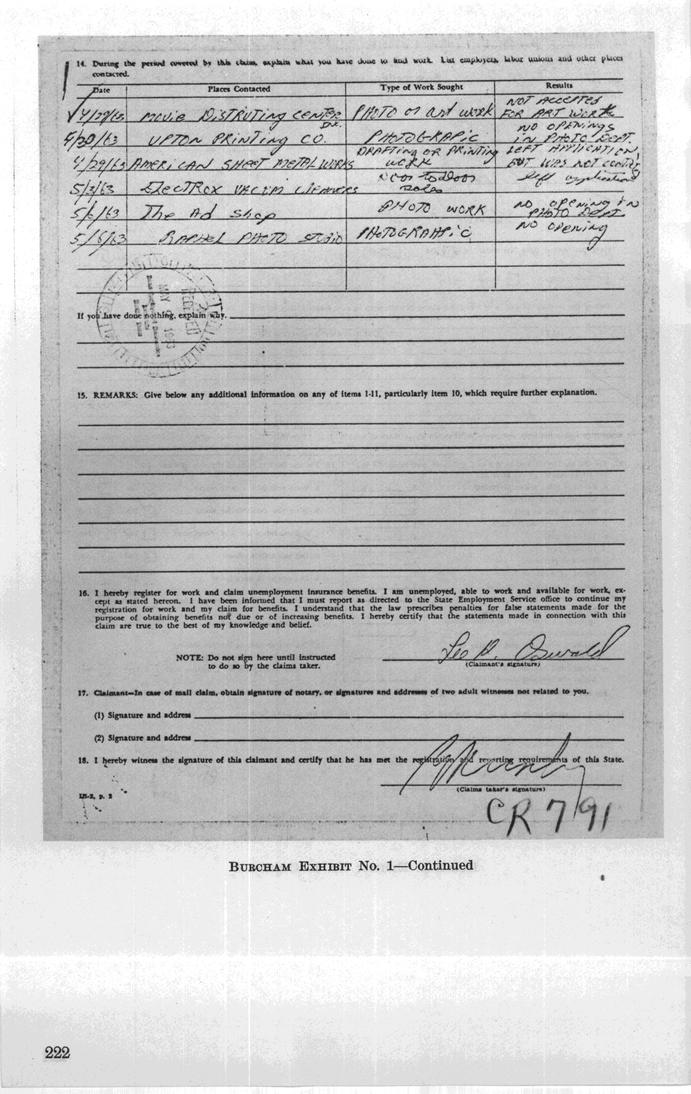 14. During the period covered by this claim, explain what you have done to find work. List employers, labor unions and other places
contacted.
Date Places Contacted Type of Work Sought Results
4/29/63 MOVIE DISTRUTING CENTER PHOTO or art work NOT ACCEPTED
FOR ART WORK
4/30/63 UPTON PRINTING CO. PHOTOGRAPIC NO OPENINGS
IN PHOTO DEPT
4/29/63 AMERICAN SHEET METAL WORKS DRAFTING OR PRINTING LEFT APPLICATION
WORK BUT WAS NOT
5/3/63 ElecTRox VACUM cleANERS Door to door left application
sales
5/6/63 The Ad Shop PHOTO WORK NO opening in
PHOTO DEPT
5/6/63 RAPHEL PHOTO STUDIO PHOTOGRAHPiC NO opening
If you have done nothing, explain why.
RECEIVED
MAY 1963
15. REMARKS: Give below any additional information on any of items 1-11, particularly item 10, which require further explanation.
16. I hereby register for work and claim unemployment insurance benefits. I am unemployed, able to work and available for work, ex-
cept as stated hereon. I have been informed that I must report as directed to the State Employment Service office to continue my
registration for work and my claim for benefits. I understand that the law prescribes penalties for false statements made for the
purpose of obtaining benefits not due or of increasing benefits. I hereby certify that the statements made in connection with this
claim are true to the best of my knowledge and belief.
NOTE: Do not sign here until instructed
to do so by the claims taker.
Lee H. Oswald
(Claimant's signature)
17. Claimant—In case of mail claim, obtain signature of notary, or signatures and addresses of two adult witnesses not related to you.
(1) Signature and address
(2) Signature and address
18. I hereby witness the signature of this claimant and certify that he has met the registration and reporting requirements of this State.
(Claims taker's signature)
p. 2
CR 791
BURCHAM EXHIBIT No. 1—Continued
222